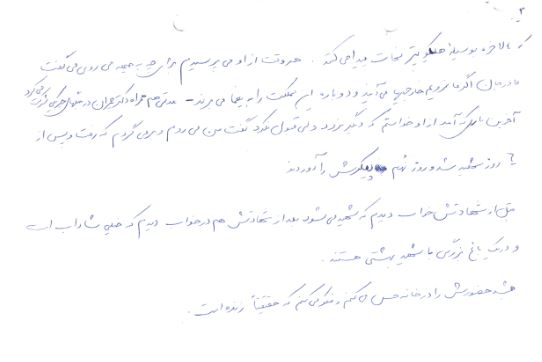 ۳
که بالاخره بوسیله هلیکوپتر نجات پیدا می‌کند. هر وقت از او می‌پرسیدم چرا به جبهه می‌روی می‌گفت
مادر جان اگر ما نرویم خارجیها می‌آیند و دوباره این مملکت را به یغما می‌برند - مدتی هم همراه دکتر چمران در
آخرین بار که آمد از او خواستم که دیگر نرود ولی قبول نکرد گفت من می‌روم و برمی‌گردم که رفت و پس از
روز شهید شد و روز نهم پیکرش را آوردند
قبل از شهادتش خواب دیدم که شهید می‌شود بعد از شهادتش هم در خواب دیدم که خیلی شاداب است
و در یک باغ بزرگی با شهید بهشتی هستند.
همیشه حضورش را در خانه حس می‌کنم و فکر می‌کنم که حقیقتاً زنده است.